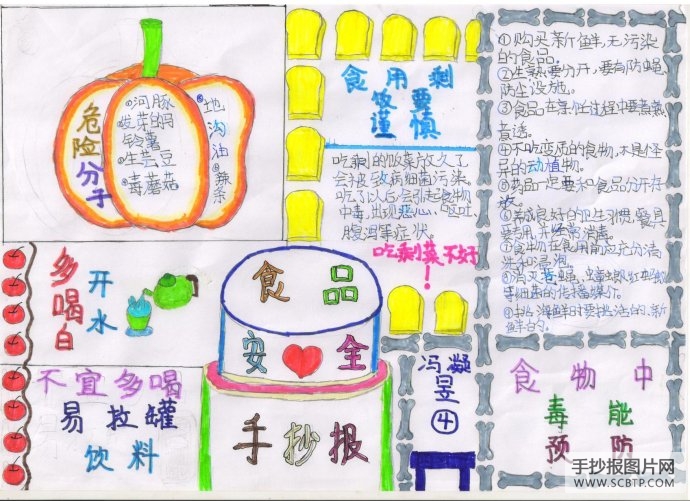 危险分子
①河豚
②发芽的马
铃薯
③生芸豆
④毒蘑菇
地沟油
食用剩
饭要
谨慎
吃剩的饭菜放久了
会被致病细菌污染。
吃了以后会引起食物
中毒,出现恶心、呕吐、
腹泻等症状。
吃剩菜不好
!
①购买新鲜,无污染
的食品。
②生熟要分开,要有防蝇、
防尘设施。
③食品在
过程中要煮熟
④不吃变质的食物,
怪
异的动植物。
⑤药品一定要和食品分开存
放。
⑥养成良好的卫生习惯,餐具
要专用,并经常消毒。
⑦食物在食用前应充分清
洗
浸泡。
⑧消灭苍蝇、蟑螂
蚂蚁
等细菌的传播媒介。
⑨挑
海鲜时要挑活的、新
鲜的。
多喝白
开水
食品
安全
手抄报
不宜多喝
易拉罐
饮料
冯凝
昱
④
食物中
毒能
预防
手抄报图片网
WWW.SCBTP.COM